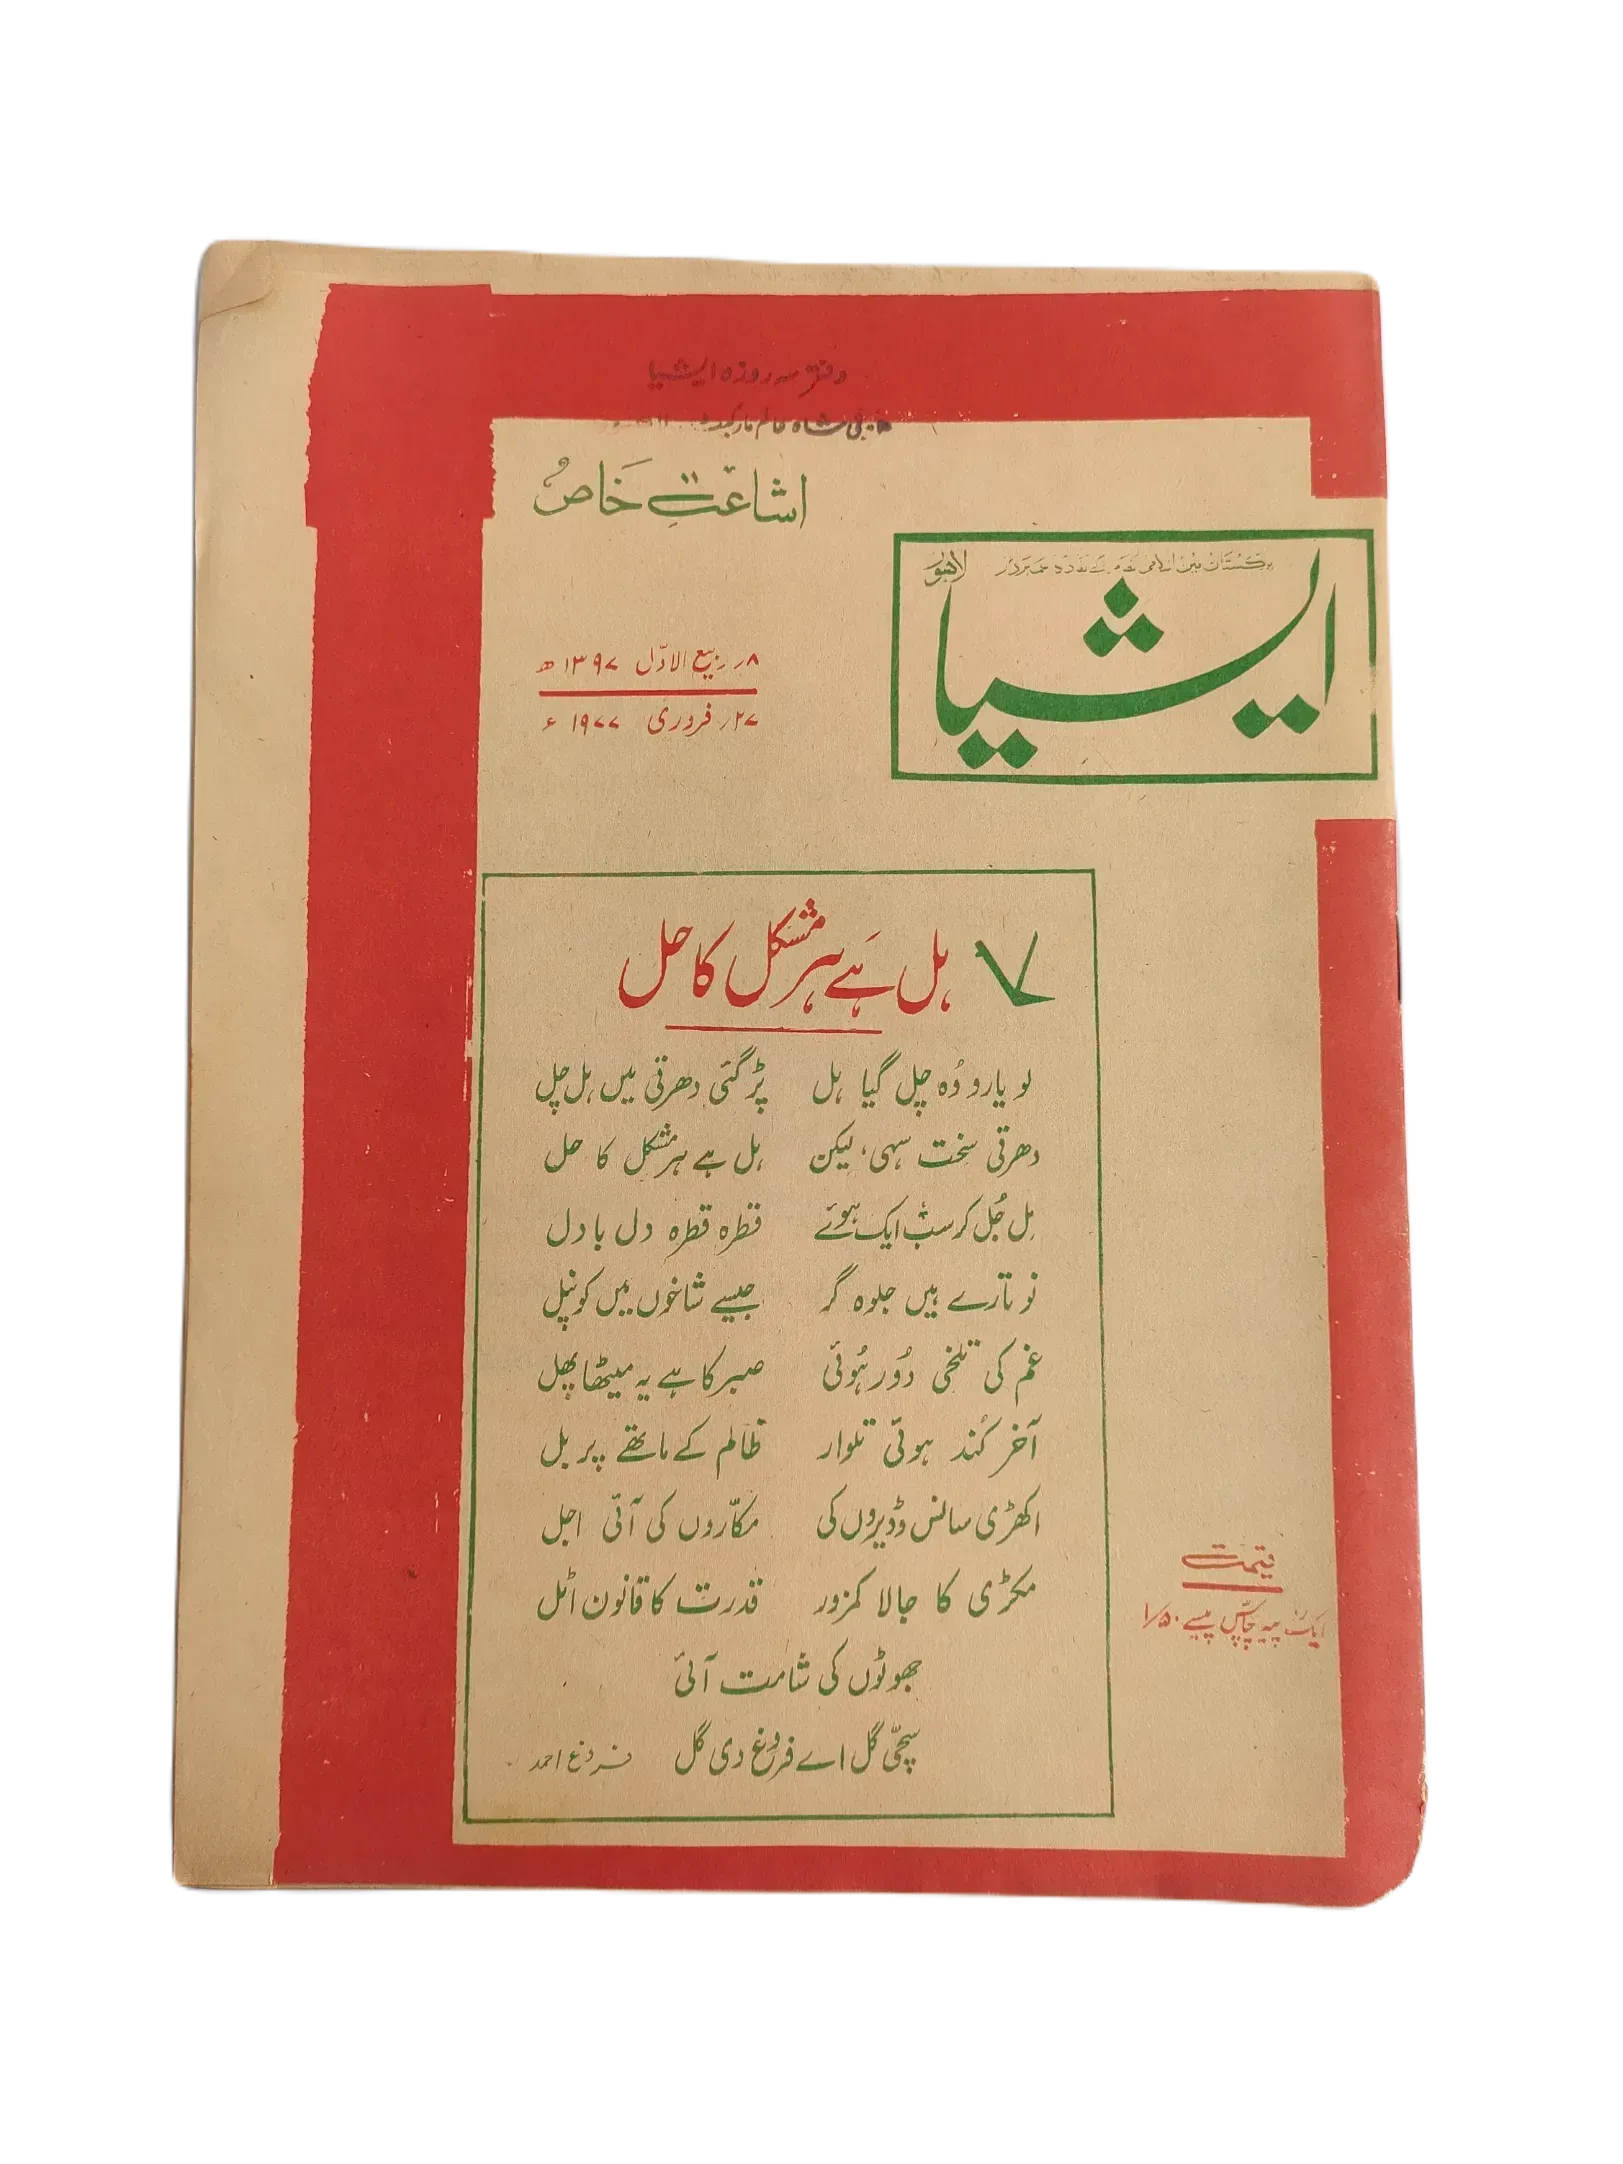 دفتر سہ روزہ ایشیا
شاہ عالم مارکیٹ
اشاعتِ خاص
لاہور
ایشیا
۸؍ ربیع الاوّل ۱۳۹۷ھ
۲۷؍ فروری ۱۹۷۷ء
ہل ہے ہر مشکل کا حل
لو یارو وُہ چل گیا ہل پڑ گئی دھرتی میں ہل چل
دھرتی سخت سہی، لیکن ہل ہے ہر مشکل کا حل
مِل جُل کر سب ایک ہوئے قطرہ قطرہ دل بادل
نو تارے ہیں جلوہ گر جیسے شاخوں میں کونپل
غم کی تلخی دُور ہُوئی صبر کا ہے یہ میٹھا پھل
آخر کُند ہوئی تلوار ظالم کے ماتھے پر بل
اکھڑی سانس وڈیروں کی مکّاروں کی آئی اجل
مکڑی کا جالا کمزور قدرت کا قانون اٹل
جھوٹوں کی شامت آئی
سچّی گل اے فروغ دی گل
فروغ احمد
قیمت
ایک روپیہ پچاس پیسے ۱/۵۰